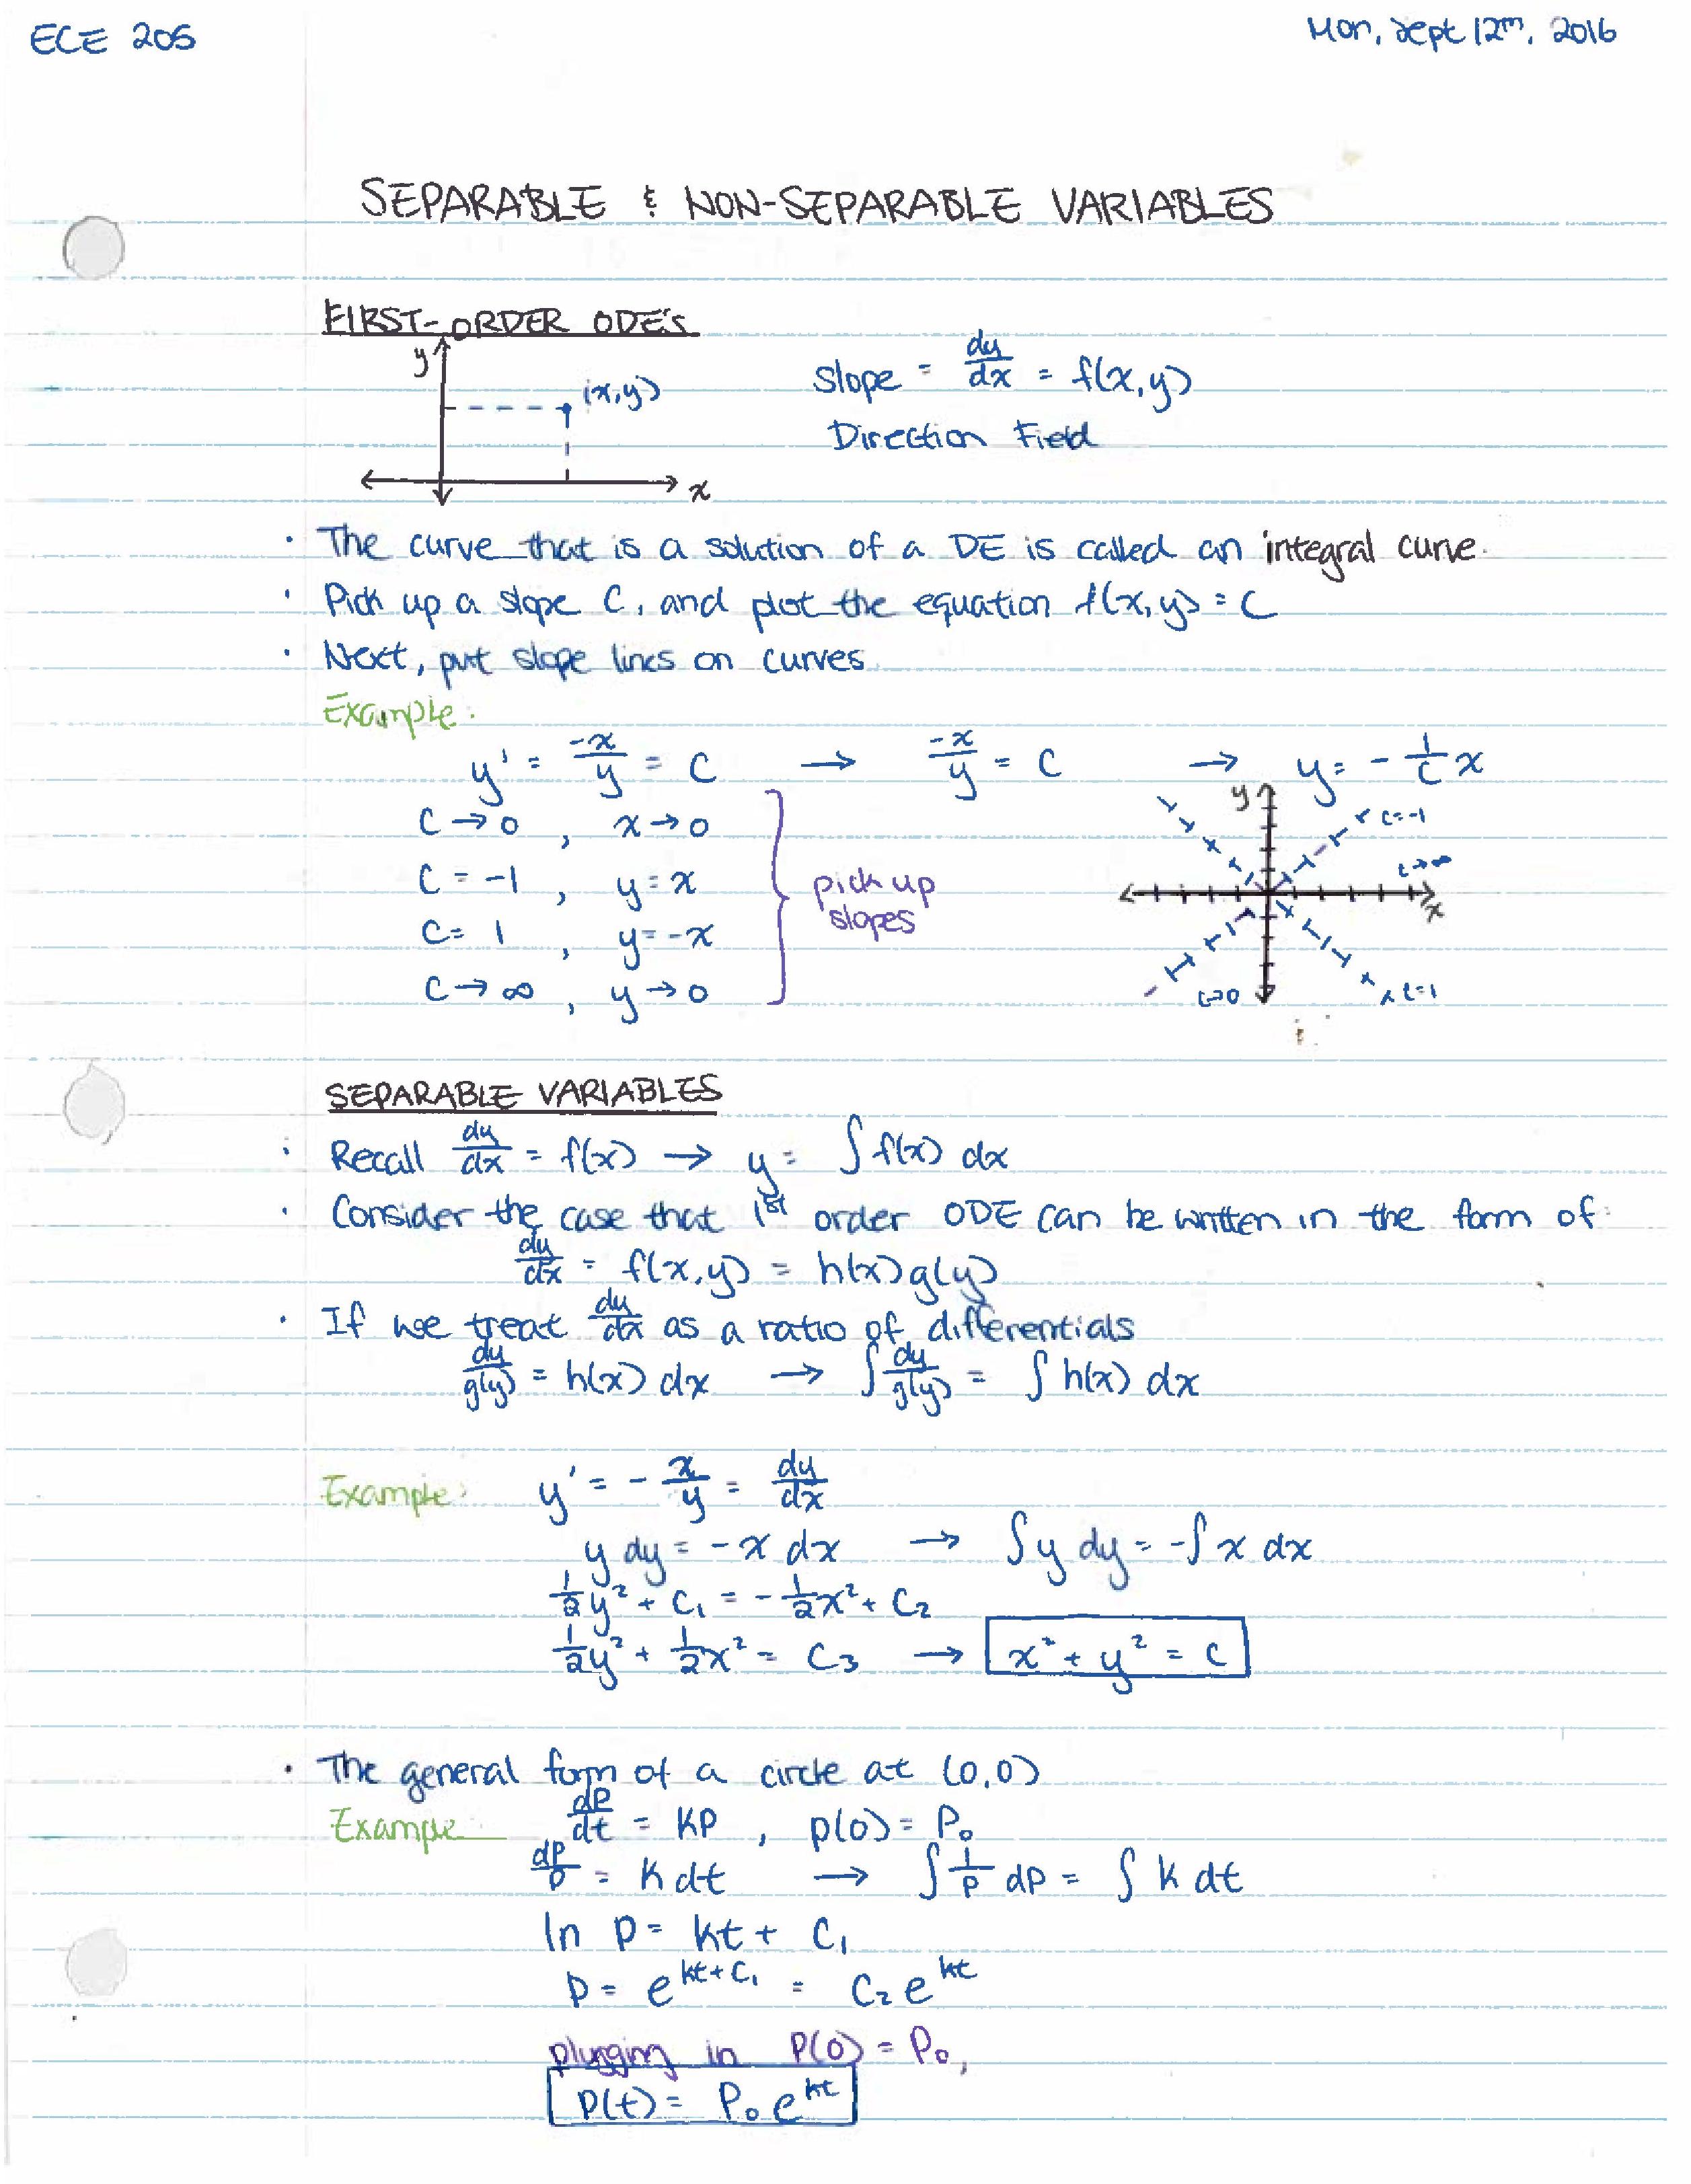 ECE 205
Mon, Sept 12th, 2016
SEPARABLE & NON-SEPARABLE VARIABLES
FIRST-ORDER ODE's
y
(x,y)
x
slope = dy/dx = f(x,y)
Direction Field
· The curve that is a solution of a DE is called an integral curve.
· Pick up a slope C, and plot the equation f(x,y) = C
· Next, put slope lines on curves
Example:
y' = -x/y = C → -x/y = C → y = - 1/C x
C → 0 , x → 0
C = -1 , y = x
C = 1 , y = -x
C → ∞ , y → 0
pick up
slopes
y
C = -1
C → ∞
x
C → 0
C = 1
SEPARABLE VARIABLES
· Recall dy/dx = f(x) → y = ∫ f(x) dx
· Consider the case that 1st order ODE can be written in the form of:
dy/dx = f(x,y) = h(x)g(y)
· If we treat dy/dx as a ratio of differentials
dy/g(y) = h(x) dx → ∫ dy/g(y) = ∫ h(x) dx
Example: y' = - x/y = dy/dx
y dy = -x dx → ∫ y dy = -∫ x dx
1/2 y² + C₁ = - 1/2 x² + C₂
1/2 y² + 1/2 x² = C₃ → x² + y² = C
· The general form of a circle at (0,0)
Example dP/dt = KP , P(0) = P₀
dP/P = K dt → ∫ 1/P dP = ∫ K dt
ln P = kt + C₁
P = e^(kt + C₁) = C₂ e^(kt)
plugging in P(0) = P₀,
P(t) = P₀ e^(kt)